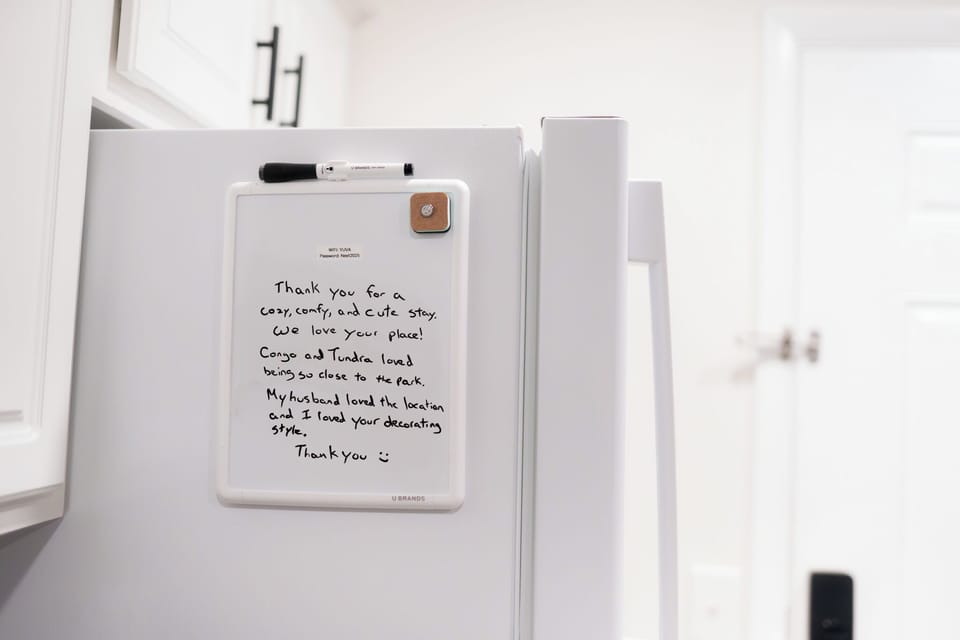 U BRANDS
WIFI: YUVA
Password: Nest2025
Thank you for a
cozy, comfy, and cute stay.
We love your place!
Congo and Tundra loved
being so close to the park.
My husband loved the location
and I loved your decorating
style.
Thank you :)
U BRANDS